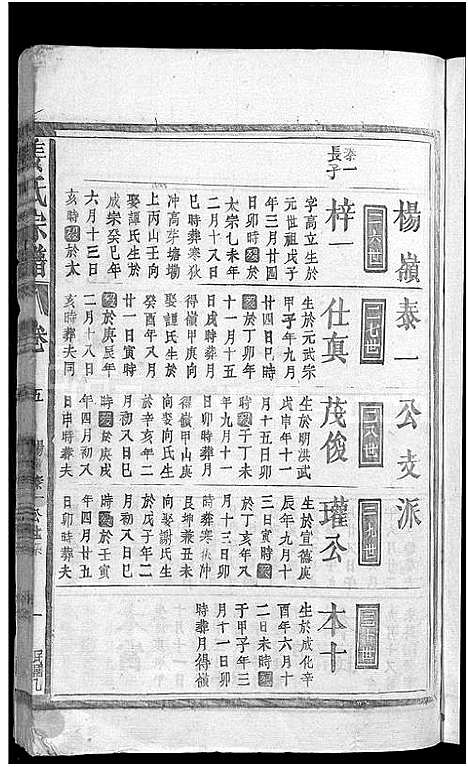 楊嶺泰一公支派
二六世
泰一
長子
梓一
字高立生於
元世祖戊子
年三月廿四
日卯時歿於
太宗乙未年
二月十八日
巳時葬寒狄
冲高芽塘塲
上丙山壬向
娶譚氏生於
成宗癸巳年
六月十三日
亥時歿於太
二七世
仕真
生於元武宗
甲子年九月
廿四日巳時
歿於丁卯年
十一月十五
日戌時葬月
得嶺甲庚向
娶譚氏生於
癸酉年又月
廿一日寅時
歿於庚辰年
二月十八日
亥時葬夫同
二八世
茂俊
生於明洪武
戊申年十一
月十五日卯
時歿于丁未
年九月十一
日卯時葬月
得嶺甲山庚
向娶向氏生
於辛亥年二
月初又日巳
時歿於庚戌
年四月初又
日申時葬夫
二九世
瓘公
生於宣德庚
辰年九月十
三日寅時歿
於丁亥年又
月十三日卯
時葬寒伏冲
艮坤兼丑未
向娶謝氏生
於戊子年二
月初又日巳
時歿於壬寅
年四月廿五
日卯時葬夫
三十世
本十
生於成化辛
酉年六月十
二日未時歿
于甲子年三
月十一日卯
時葬月得嶺
姜氏宗譜
卷五
楊嶺泰一公世系
一